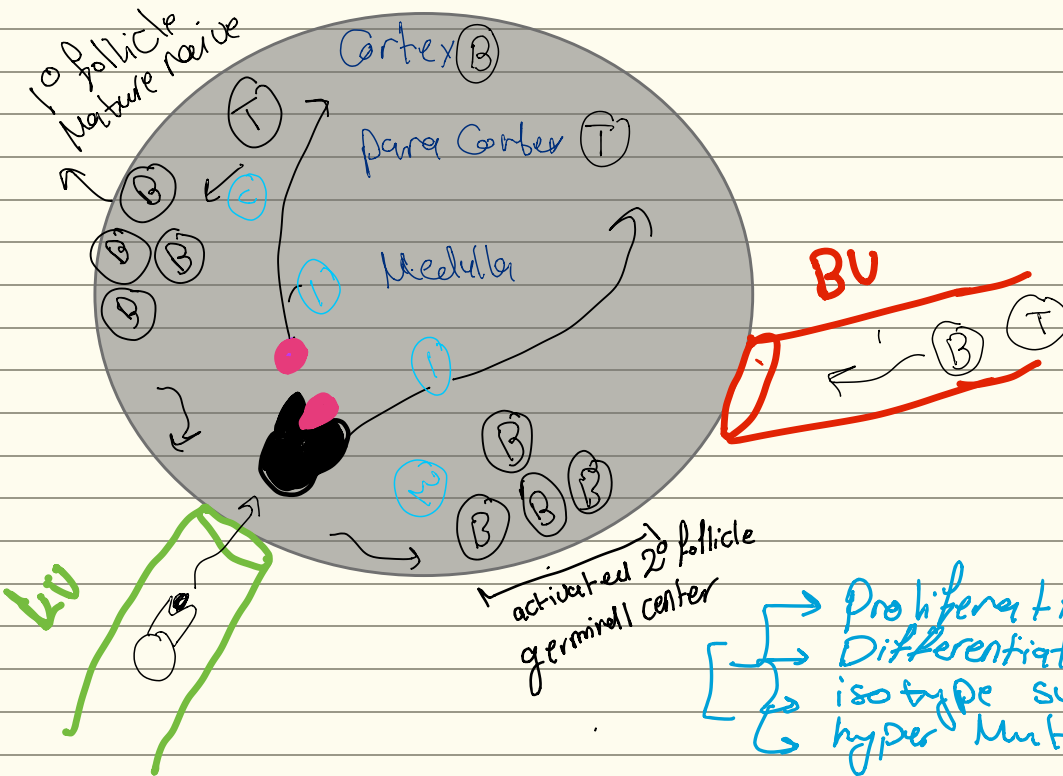 1° follicle
Mature naive
Cortex B
T
para Cortex T
C
B
B B
B
Medulla
1
1
BV
B T
B
B B B
LV
activated 2° follicle
germinall center
Proliferati
Differentiat
isotype su
hyper Mut